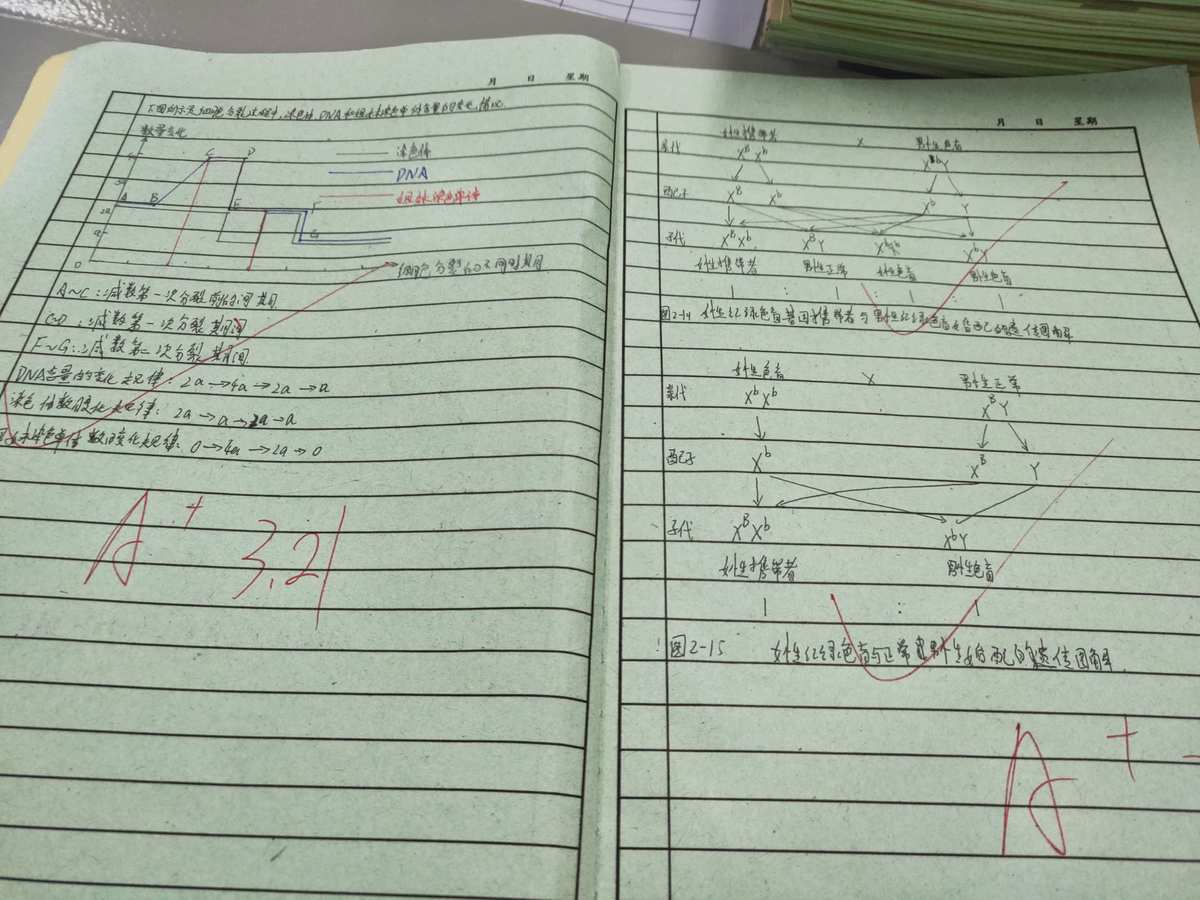 月 日 星期
下图所示是细胞分裂过程中，染色体、DNA和姐妹染色单体含量的变化情况
数量变化
C D
A B
E
F
G
2a
a
0
染色体
DNA
姐妹染色单体
细胞分裂的不同时期
A~C：减数第一次分裂前的间期
C~D：减数第一次分裂期间
F~G：减数第二次分裂期间
DNA含量的变化规律：2a→4a→2a→a
染色体数变化规律：2a→a→2a→a
姐妹染色单体数变化规律：0→4a→2a→0
A+ 3.21
月 日 星期
女性携带者 × 男性色盲
亲代 XBXb XbY
配子 XB Xb Xb Y
子代 XBXb XBY XbXb XbY
女性携带者 男性正常 女性色盲 男性色盲
1 : 1 : 1 : 1
图2-14 女性红绿色盲基因携带者与男性红绿色盲婚配的遗传图解
女性色盲 × 男性正常
亲代 XbXb XBY
配子 Xb XB Y
子代 XBXb XbY
女性携带者 男性色盲
1 : 1
图2-15 女性红绿色盲与正常男性婚配的遗传图解
A+